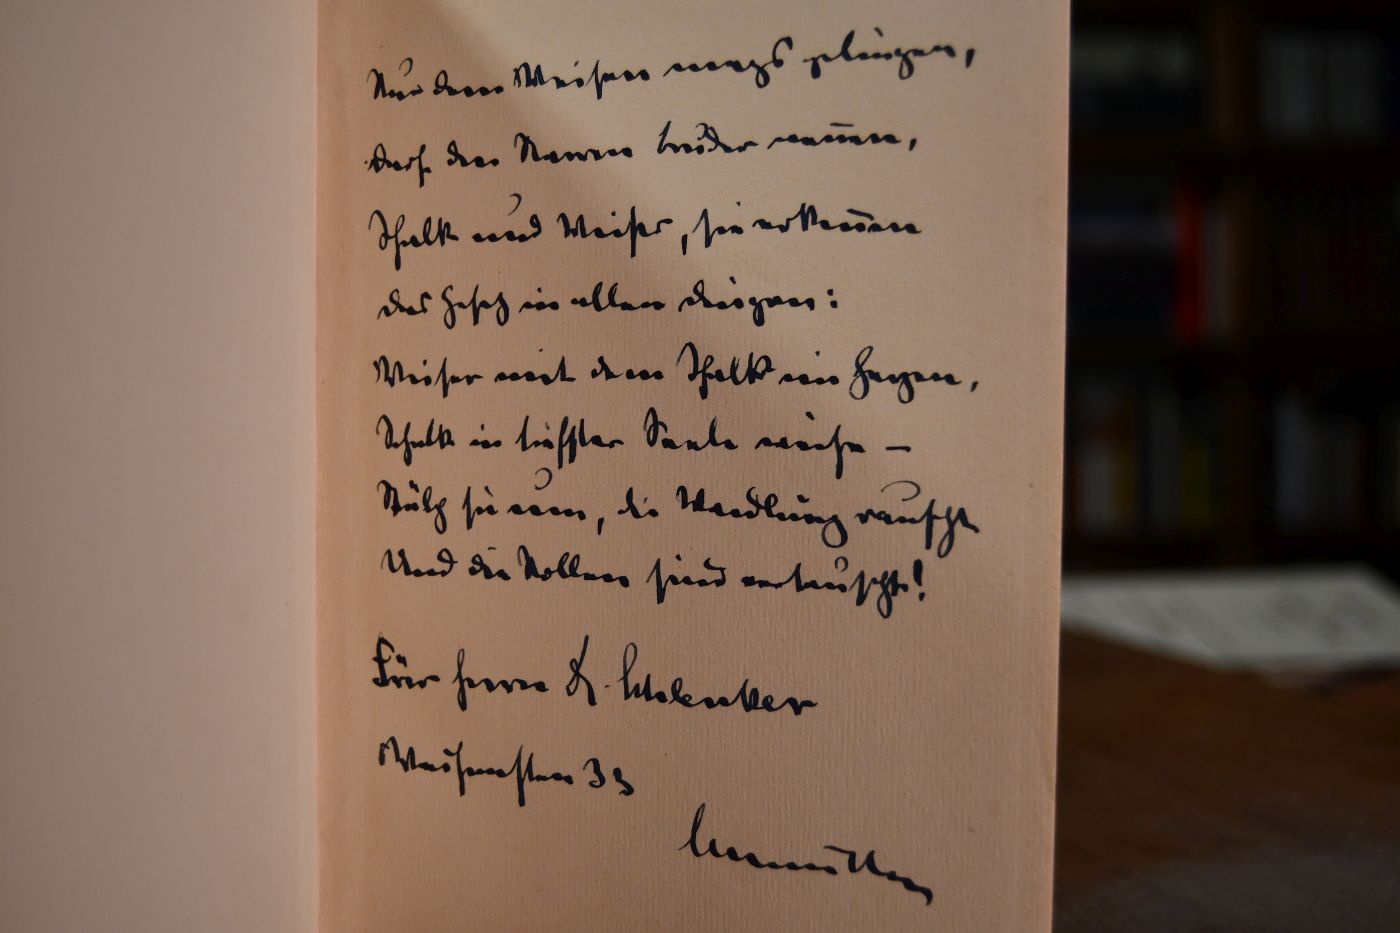 Nur dem Weisen mags gelingen,
darf den Narren bruder nennen,
Schalk und Weiser, sie erkennen
das Gesetz in allen dingen:
Weiser mit dem Schalk im
Schalk in tiefster Seele weise —
Stülp sie um, die Wandlung rauscht
Und die Rollen sind vertauscht!
Für Herrn K.
Weihnachten 33